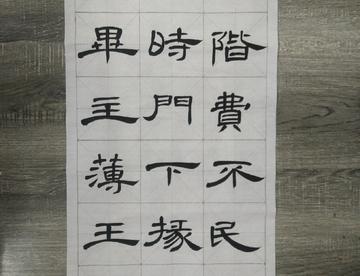 階費不民
時門下掾
畢主薄王